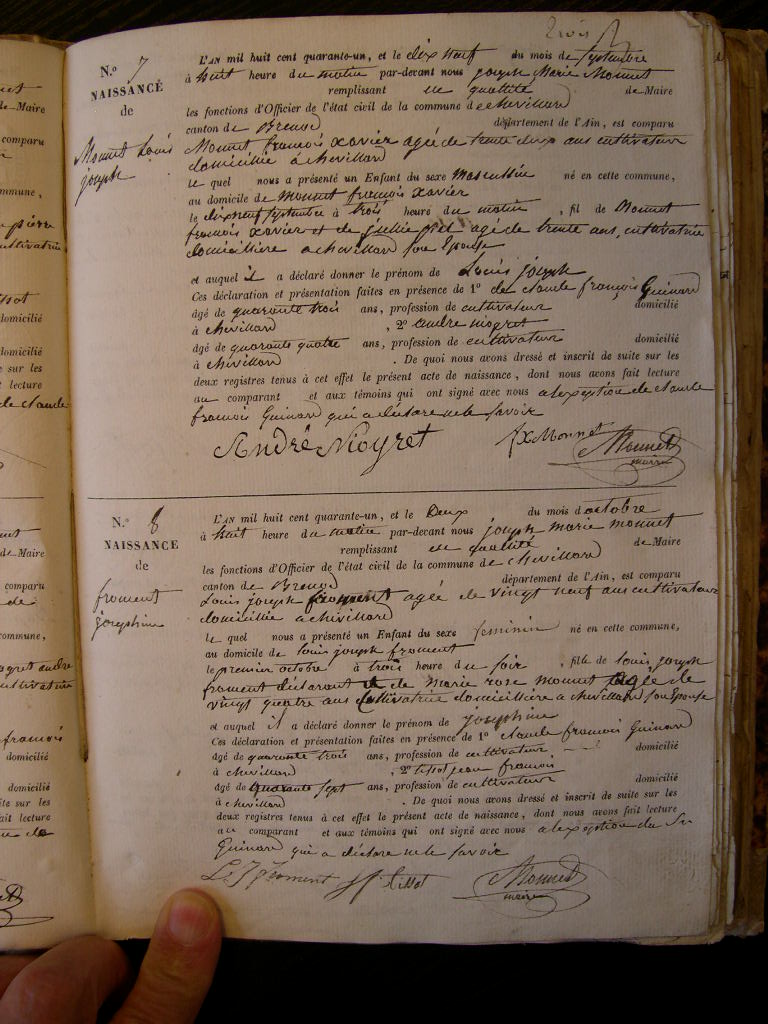 N.º 7
NAISSANCE
de
Monnet Louis
joseph
L'AN mil huit cent quarante-un, et le dix neuf du mois de septembre
à huit heure du matin par-devant nous joseph Marie Monnet
remplissant en qualité de Maire
les fonctions d'Officier de l'état civil de la commune de chevillard
canton de Brenod département de l'Ain, est comparu
Monnet françois xavier agé de trente deux ans cultivateur
domicilié a chevillard
le quel nous a présenté un Enfant du sexe masculin né en cette commune,
au domicile de monnet françois xavier
le dix neuf septembre à trois heure du matin, fil de Monnet
françois xavier et de julie agé de trente ans, cultivatrice
domicilière a chevillard son Epouse
et auquel il a déclaré donner le prénom de Louis joseph
Ces déclaration et présentation faites en présence de 1º de claude françois Guinard
âgé de quarante trois ans, profession de cultivateur domicilié
à chevillard, 2º andré niogret
âgé de quarante quatre ans, profession de cultivateur domicilié
à chevillard. De quoi nous avons dressé et inscrit de suite sur les
deux registres tenus à cet effet le présent acte de naissance, dont nous avons fait lecture
au comparant et aux témoins qui ont signé avec nous a lexeption de claude
françois Guinard qui a déclaré ne le savoir
André Niogret fx Monnet Monnet
maire
N.º 8
NAISSANCE
de
froment
josephine
L'AN mil huit cent quarante-un, et le Deux du mois d octobre
à huit heure du matin par-devant nous joseph marie monnet
remplissant en qualité de Maire
les fonctions d'Officier de l'état civil de la commune de chevillard
canton de Brenod département de l'Ain, est comparu
Louis joseph froment agée de vingt neuf ans cultivateur
domicilié a chevillard
le quel nous a présenté un Enfant du sexe feminin né en cette commune,
au domicile de louis joseph froment
le premier octobre à trois heure du soir, fille de louis joseph
froment déclarant et de marie rose monnet agée de
vingt quatre ans Cultivatrice domicilière a chevillard son Epouse
et auquel il a déclaré donner le prénom de josephine
Ces déclaration et présentation faites en présence de 1º claude françois Guinard
âgé de quarante trois ans, profession de cultivateur domicilié
à chevillard, 2º tissot jean françois
âgé de quarante sept ans, profession de cultivateur domicilié
à chevillard. De quoi nous avons dressé et inscrit de suite sur les
deux registres tenus à cet effet le présent acte de naissance, dont nous avons fait lecture
au comparant et aux témoins qui ont signé avec nous a lexeption du
Guinard qui a déclaré ne le savoir
L. J froment jf tissot Monnet
maire